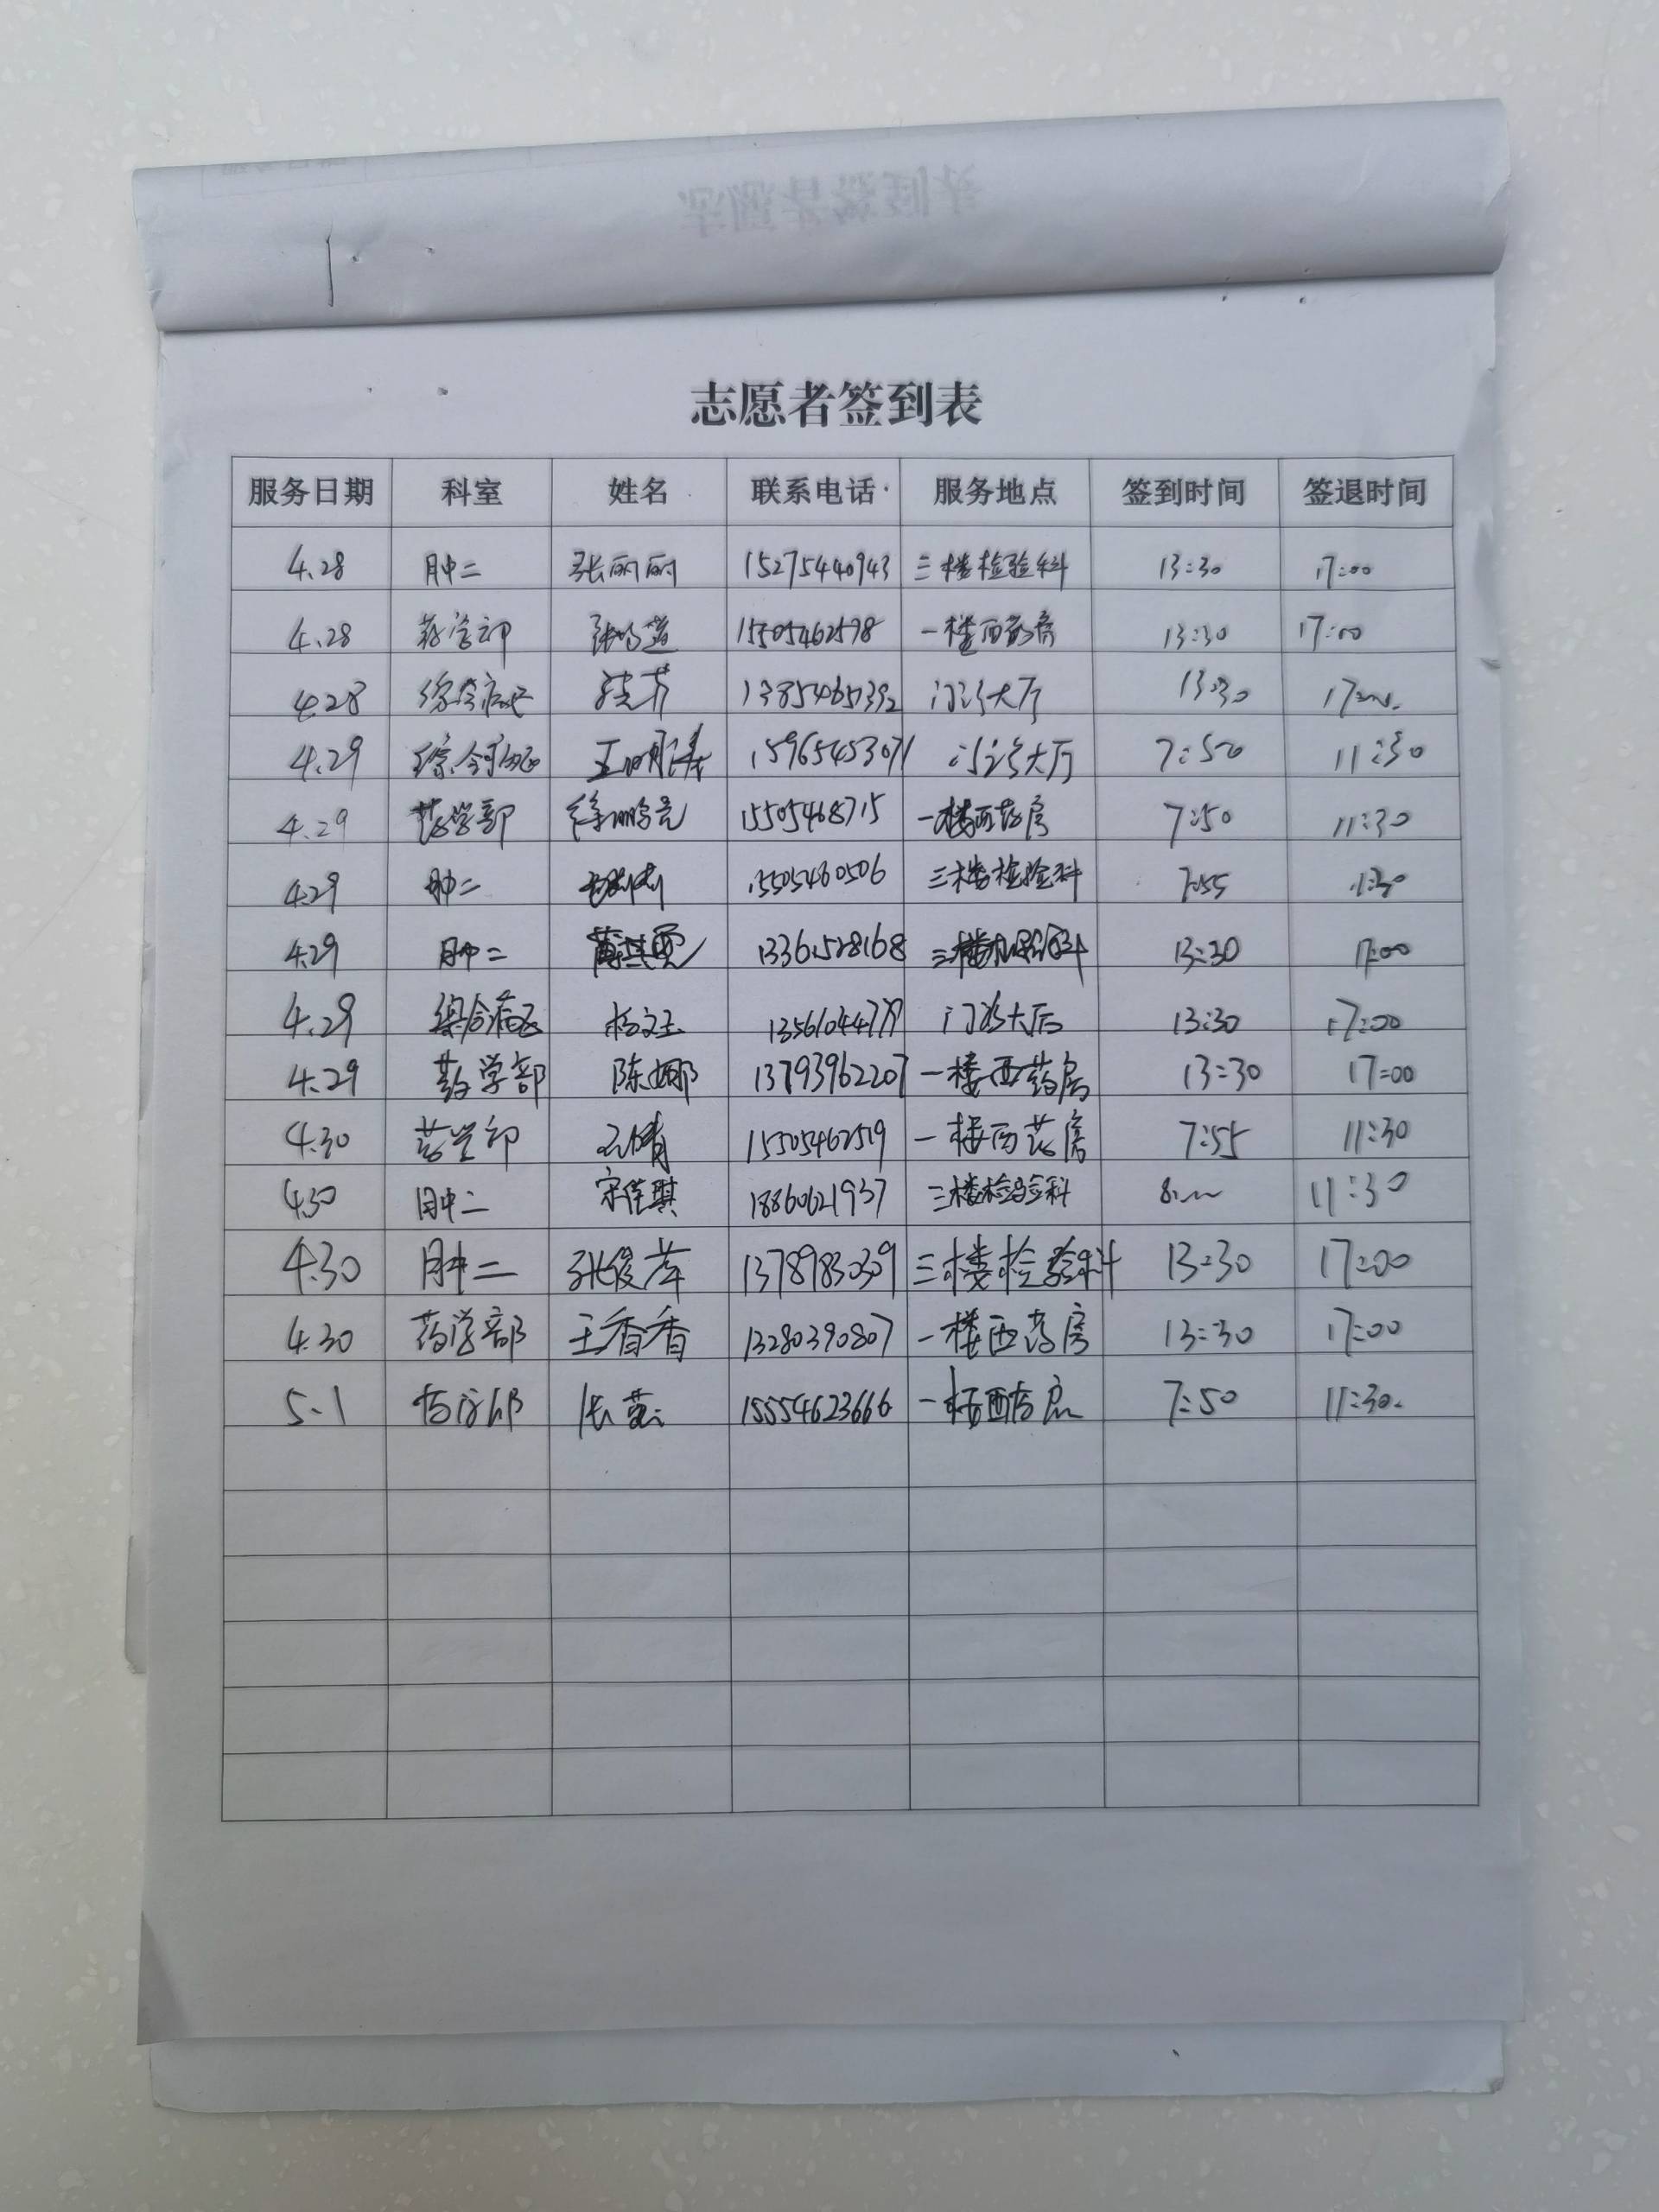 志愿者签到表
服务日期 科室 姓名 联系电话 服务地点 签到时间 签退时间
4.28 肿二 张丽丽 15275440943 三楼检验科 13:30 17:00
4.28 药学部 15505462598 一楼西药房 13:30 17:00
4.28 综合病区 门诊大厅 13:30 17:00
4.29 综合病区 15965453071 门诊大厅 7:50 11:30
4.29 药学部 15505468715 一楼西药房 7:50 11:30
4.29 肿二 15505460506 三楼检验科 7:55 11:30
4.29 肿二 13361528168 三楼检验科 13:30 17:00
4.29 综合病区 杨文玉 门诊大厅 13:30 17:00
4.29 药学部 陈娜 13793962207 一楼西药房 13:30 17:00
4.30 药学部 15505462519 一楼西药房 7:55 11:30
4.30 肿二 宋佳琪 18860621937 三楼检验科 8:00 11:30
4.30 肿二 张俊萍 13789830309 三楼检验科 13:30 17:00
4.30 药学部 王香香 13280390807 一楼西药房 13:30 17:00
5.1 药学部 15554623666 一楼西药房 7:50 11:30